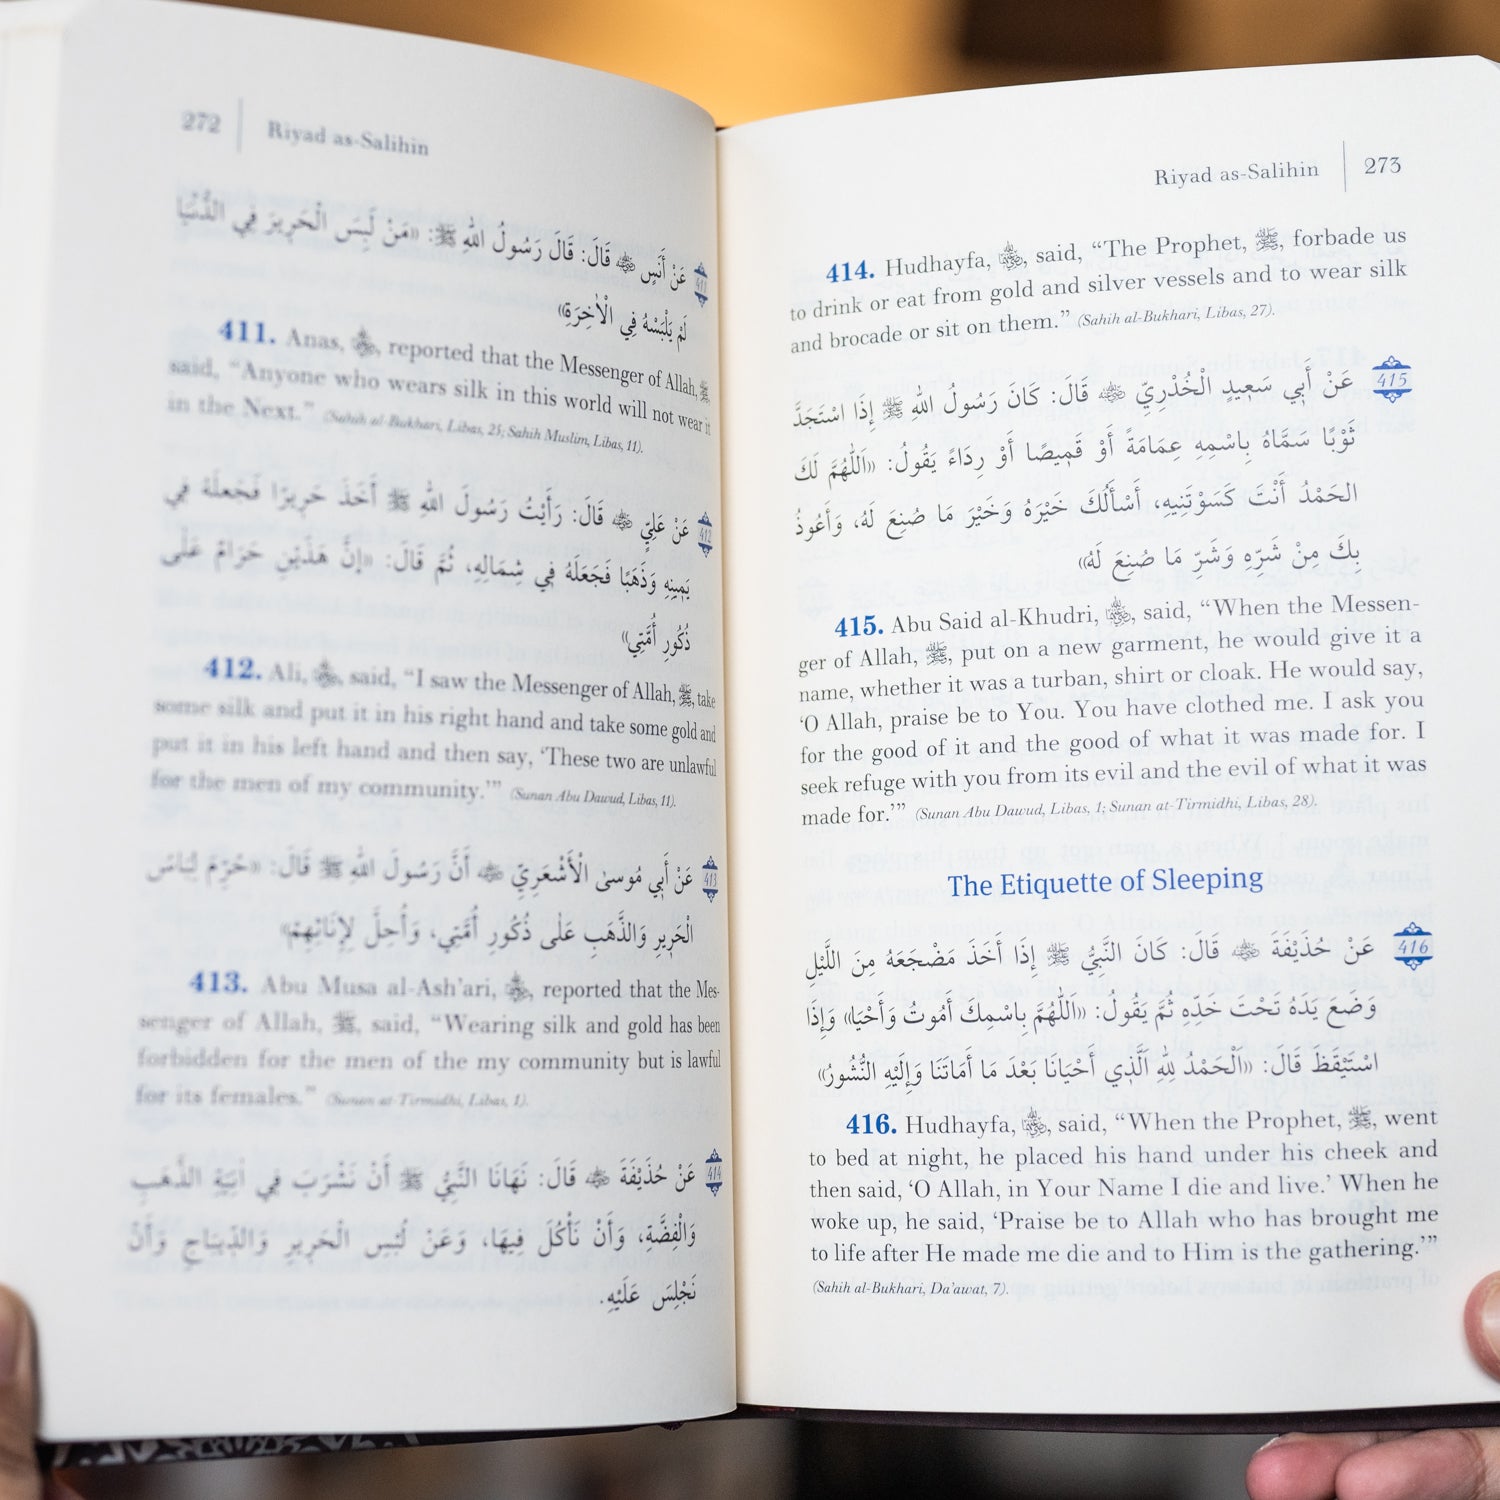 272 | Riyad as-Salihin
411
عَنْ أَنَسٍ ﷺ قَالَ: قَالَ رَسُولُ اللهِ ﷺ: «مَنْ لَبِسَ الْحَرِيرَ فِي الدُّنْيَا
لَمْ يَلْبَسْهُ فِي الْآخِرَةِ»
411. Anas, , reported that the Messenger of Allah, ﷺ,
said, “Anyone who wears silk in this world will not wear it
in the Next.” (Sahih al-Bukhari, Libas, 25; Sahih Muslim, Libas, 11).
412
عَنْ عَلِيٍّ قَالَ: رَأَيْتُ رَسُولَ اللهِ ﷺ أَخَذَ حَرِيرًا فَجَعَلَهُ فِي
يَمِينِهِ وَذَهَبًا فَجَعَلَهُ فِي شِمَالِهِ، ثُمَّ قَالَ: «إِنَّ هَذَيْنِ حَرَامٌ عَلَى
ذُكُورِ أُمَّتِي»
412. Ali, , said, “I saw the Messenger of Allah, ﷺ, take
some silk and put it in his right hand and take some gold and
put it in his left hand and then say, ‘These two are unlawful
for the men of my community.’” (Sunan Abu Dawud, Libas, 11).
413
عَنْ أَبِي مُوسىٰ الْأَشْعَرِيِّ أَنَّ رَسُولَ اللهِ ﷺ قَالَ: «حُرِّمَ لِبَاسُ
الْحَرِيرِ وَالذَّهَبِ عَلَى ذُكُورِ أُمَّتِي، وَأُحِلَّ لِإِنَاثِهِمْ»
413. Abu Musa al-Ash’ari, , reported that the Mes-
senger of Allah, ﷺ, said, “Wearing silk and gold has been
forbidden for the men of the my community but is lawful
for its females.” (Sunan at-Tirmidhi, Libas, 1).
414
عَنْ حُذَيْفَةَ قَالَ: نَهَانَا النَّبِيُّ ﷺ أَنْ نَشْرَبَ فِي آنِيَةِ الذَّهَبِ
وَالْفِضَّةِ، وَأَنْ نَأْكُلَ فِيهَا، وَعَنْ لُبْسِ الْحَرِيرِ وَالدِّيبَاجِ وَأَنْ
نَجْلِسَ عَلَيْهِ.
Riyad as-Salihin | 273
414. Hudhayfa, , said, “The Prophet, ﷺ, forbade us
to drink or eat from gold and silver vessels and to wear silk
and brocade or sit on them.” (Sahih al-Bukhari, Libas, 27).
415
عَنْ أَبِي سَعِيدٍ الْخُدْرِيِّ قَالَ: كَانَ رَسُولُ اللهِ ﷺ إِذَا اسْتَجَدَّ
ثَوْبًا سَمَّاهُ بِاسْمِهِ عِمَامَةً أَوْ قَمِيصًا أَوْ رِدَاءً يَقُولُ: «اَللّٰهُمَّ لَكَ
الحَمْدُ أَنْتَ كَسَوْتَنِيهِ، أَسْأَلُكَ خَيْرَهُ وَخَيْرَ مَا صُنِعَ لَهُ، وَأَعُوذُ
بِكَ مِنْ شَرِّهِ وَشَرِّ مَا صُنِعَ لَهُ»
415. Abu Said al-Khudri, , said, “When the Messen-
ger of Allah, ﷺ, put on a new garment, he would give it a
name, whether it was a turban, shirt or cloak. He would say,
‘O Allah, praise be to You. You have clothed me. I ask you
for the good of it and the good of what it was made for. I
seek refuge with you from its evil and the evil of what it was
made for.’” (Sunan Abu Dawud, Libas, 1; Sunan at-Tirmidhi, Libas, 28).
The Etiquette of Sleeping
416
عَنْ حُذَيْفَةَ قَالَ: كَانَ النَّبِيُّ ﷺ إِذَا أَخَذَ مَضْجَعَهُ مِنَ اللَّيْلِ
وَضَعَ يَدَهُ تَحْتَ خَدِّهِ ثُمَّ يَقُولُ: «اَللّٰهُمَّ بِاسْمِكَ أَمُوتُ وَأَحْيَا» وَإِذَا
اسْتَيْقَظَ قَالَ: «اَلْحَمْدُ لِلهِ الَّذِي أَحْيَانَا بَعْدَ مَا أَمَاتَنَا وَإِلَيْهِ النُّشُورُ»
416. Hudhayfa, , said, “When the Prophet, ﷺ, went
to bed at night, he placed his hand under his cheek and
then said, ‘O Allah, in Your Name I die and live.’ When he
woke up, he said, ‘Praise be to Allah who has brought me
to life after He made me die and to Him is the gathering.’”
(Sahih al-Bukhari, Da’awat, 7).